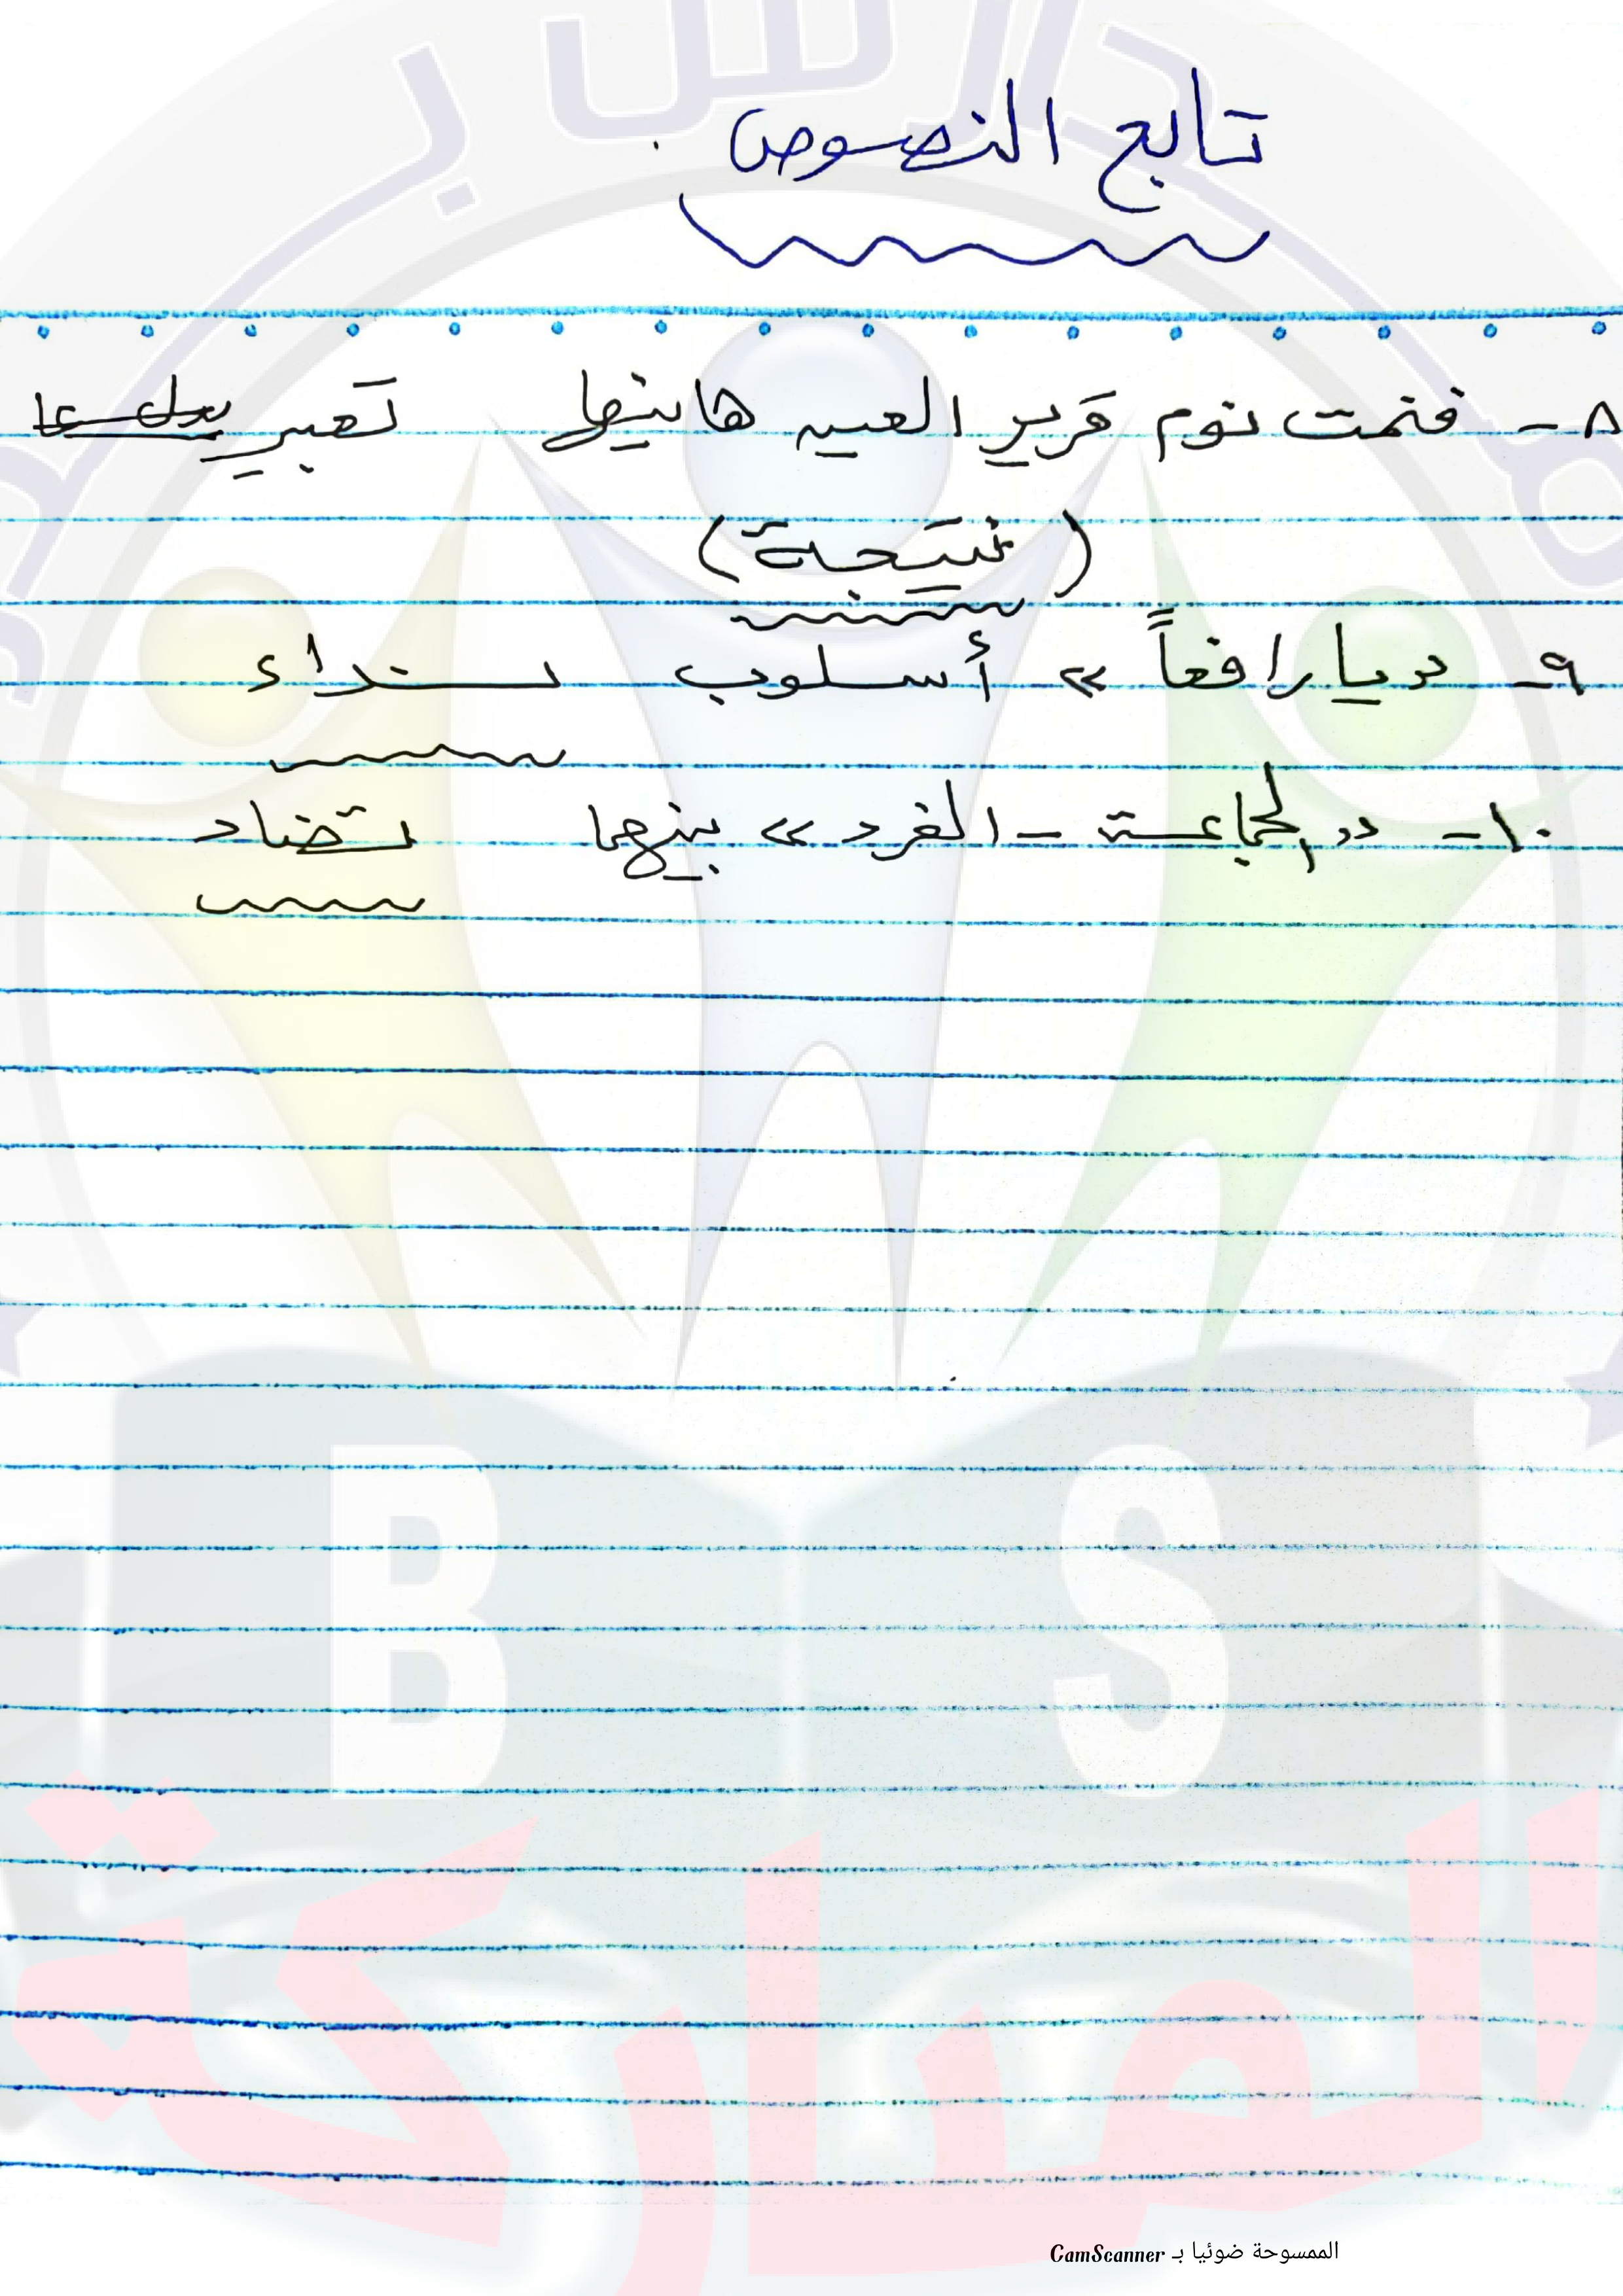 تابع النصوص
٨- فنمت نوم قرير العين هانيها تعبير يدل على
(نتيجة)
٩- " يا رافعاً " أسلوب نداء
١٠- " الجماعة - الفرد " بينهما تضاد
B S
المباركة
الممسوحة ضوئيا بـ CamScanner